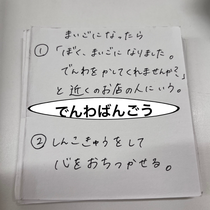 まいごになったら
① 「ぼく、まいごになりました。
でんわをかしてくれませんか?」
と近くのお店の人にいう。
でんわばんごう
② しんこきゅうをして
心をおちつかせる。